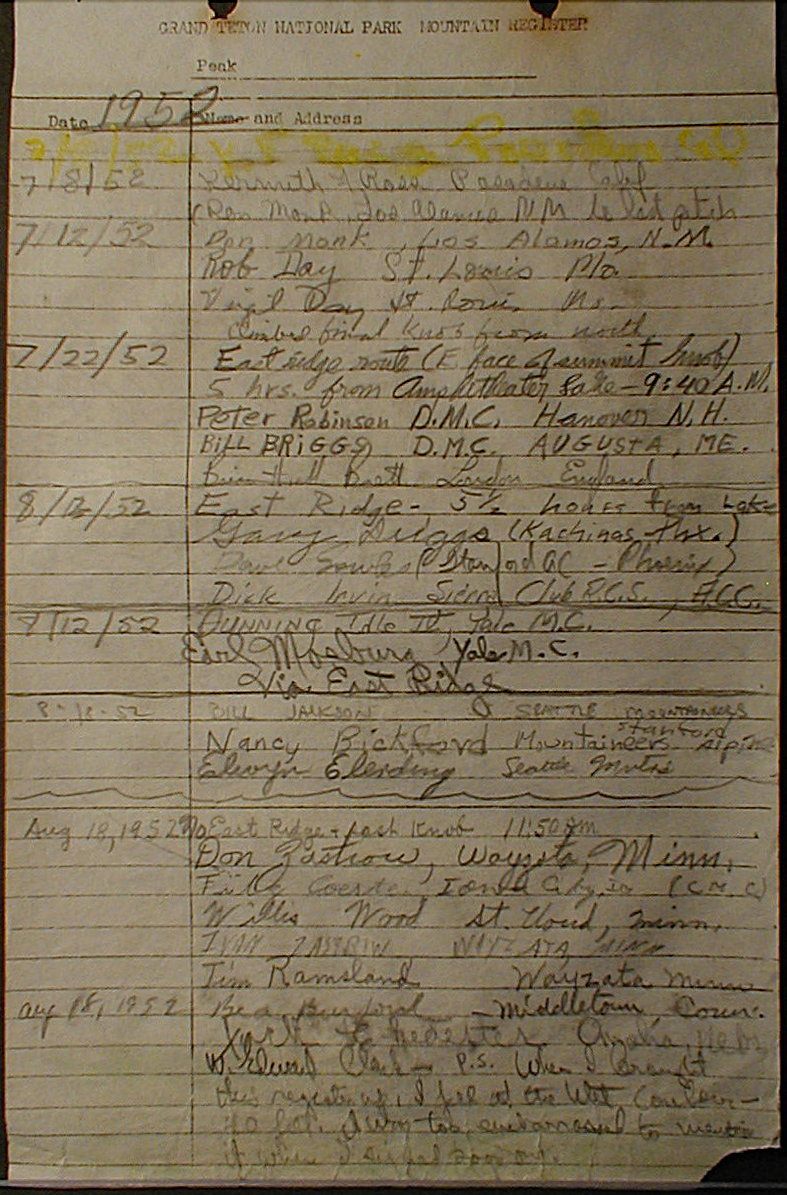 GRAND TETON NATIONAL PARK MOUNTAIN REGISTER
Peak
Date 1952 Name and Address
7/8/52 Kermith Ross Pasadena Calif
(Don Monk, Los Alamos NM to last pitch
7/12/52 Don Monk, Los Alamos, N.M.
Rob Day St. Louis Mo.
Virgil Day St. Louis, Mo.
Climbed final knob from north
7/22/52 East ridge route (E face of summit knob)
5 hrs. from Amphitheater Lake - 9:40 A.M.
Peter Robinson D.M.C. Hanover N.H.
BILL BRIGGS D.M.C. AUGUSTA, ME.
London England
8/12/52 East Ridge - 5½ hours from Lake
Gary Driggs (Kachinas - Phx.)
Dave (Stanford AC - Phoenix)
Dick Irvin Sierra Club R.C.S., A.C.C.
8/12/52 DUNNING Idle IV, Yale M.C.
Earl Mosburg Yale M.C.
Via East Ridge
8-18-52 BILL JACKSON SEATTLE MOUNTAINEERS
Stanford
Nancy Bickford Mountaineers Alpine
Elwyn Elerding Seattle Mntrs
Aug 18, 1952 East Ridge + last Knob 11:50 am
Don Zastrow, Wayzata, Minn.
Iowa City, Ia (C.M.C)
Willis Wood St. Cloud, Minn.
WAYZATA MINN
Jim Ramsland Wayzata Minn
Aug 18, 1952 Middletown, Conn.
Omaha, Nebr.
W. Edward Clark - P.S. When I brought
this register up, I fell at the Wet Couloir -
I was too embarrassed to mention
it when I